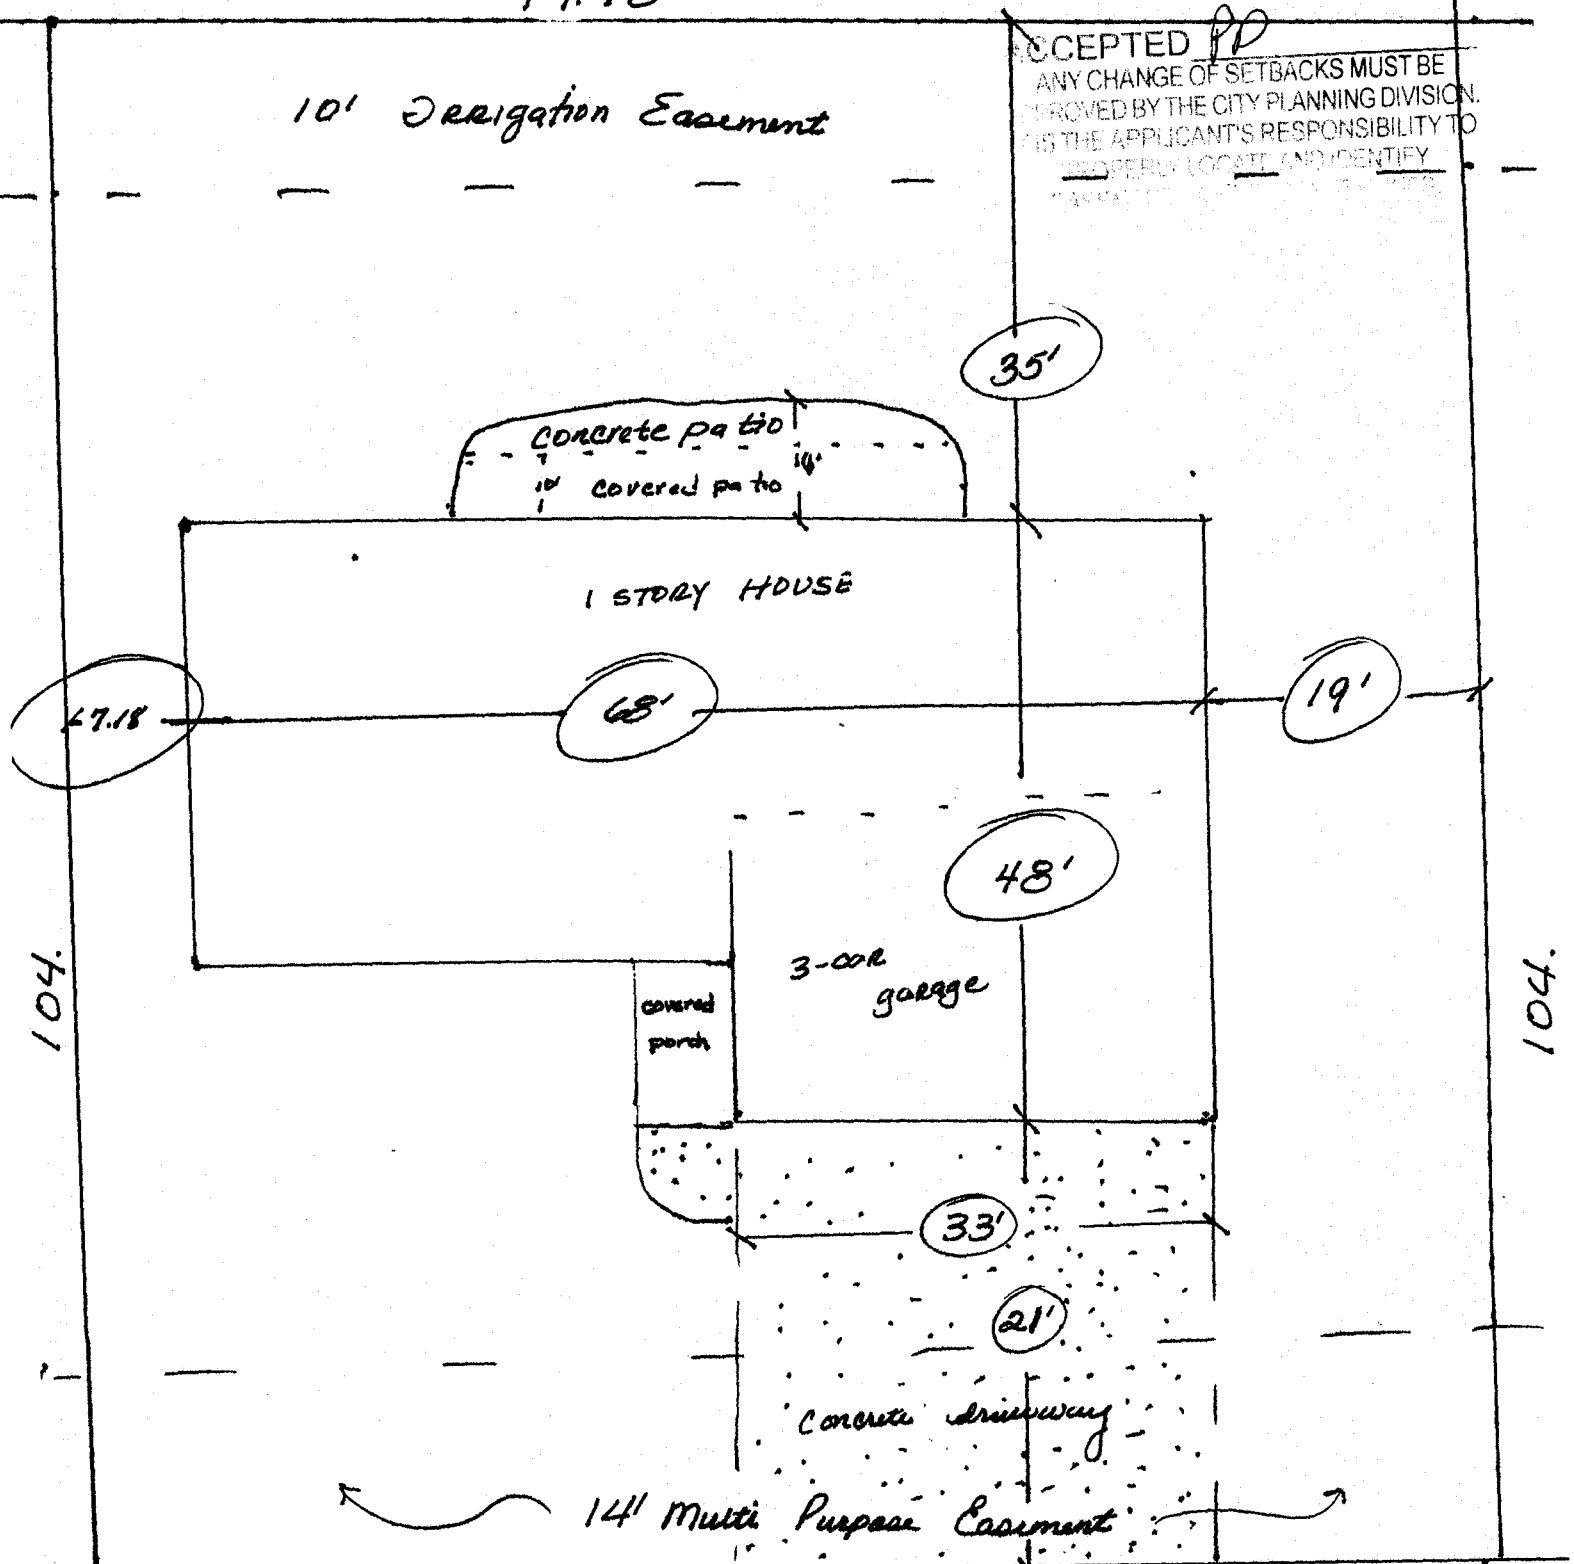 ACCEPTED PD
ANY CHANGE OF SETBACKS MUST BE
APPROVED BY THE CITY PLANNING DIVISION.
IS THE APPLICANT'S RESPONSIBILITY TO
PROPERLY LOCATE AND IDENTIFY
10' Irrigation Easement
35'
Concrete patio
10' covered patio
1 STORY HOUSE
7.18
68'
19'
48'
3-car
garage
covered
porch
104.
104.
33'
21'
Concrete driveway
14' Multi Purpose Easement